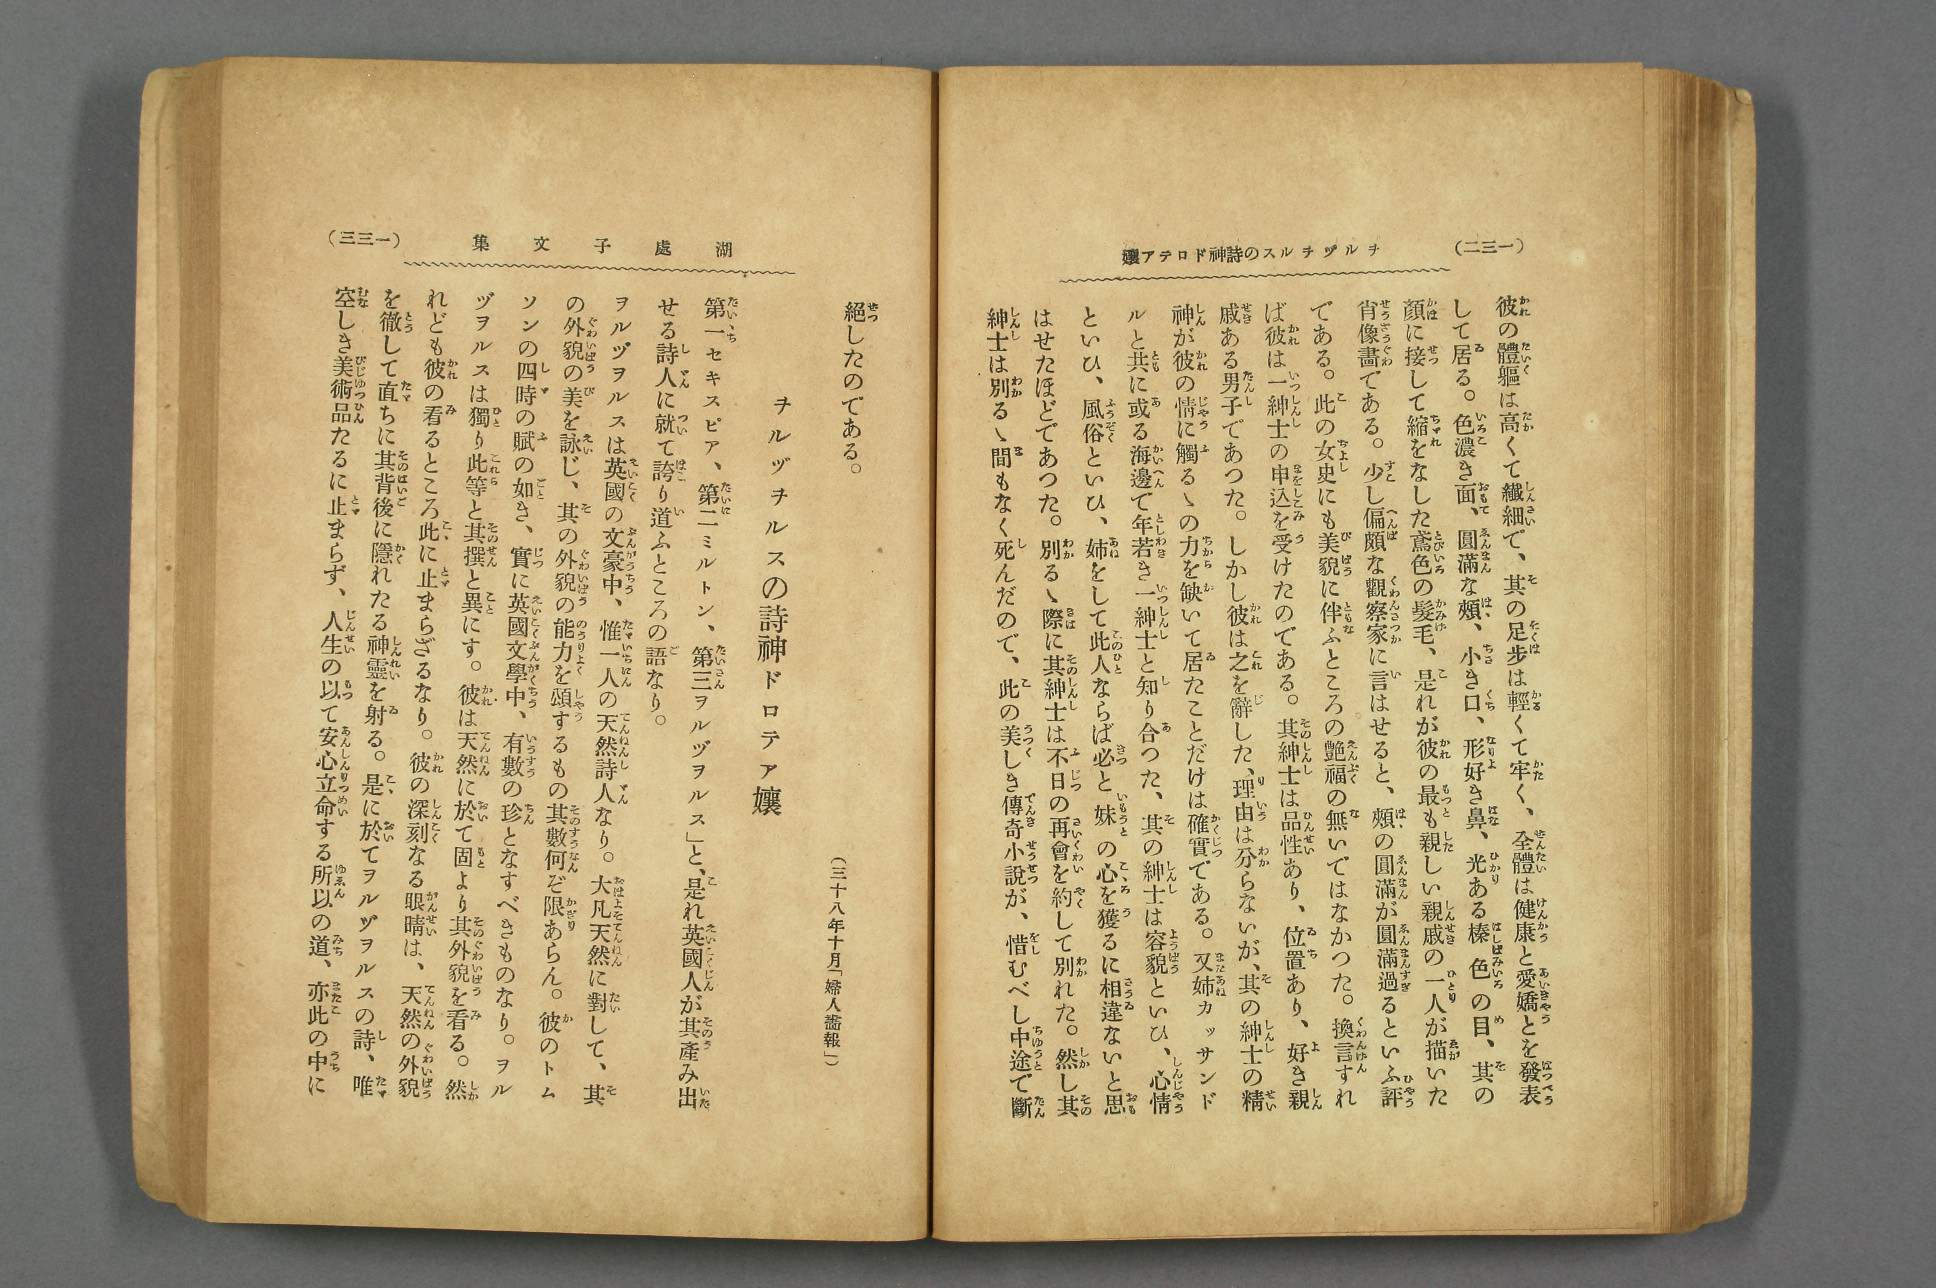 (一三二)
ヲルヅヲルスの詩神ドロテア孃
彼の體軀は高くて纖細で、其の足歩は輕くて牢く、全體は健康と愛嬌とを發表
して居る。色濃き面、圓滿な頰、小き口、形好き鼻、光ある榛色の目、其の
顏に接して縮をなした鳶色の髮毛、是れが彼の最も親しい親戚の一人が描いた
肖像畫である。少し偏頗な觀察家に言はせると、頰の圓滿が圓滿過るといふ評
である。此の女史にも美貌に伴ふところの艶福の無いではなかつた。換言すれ
ば彼は一紳士の申込を受けたのである。其紳士は品性あり、位置あり、好き親
戚ある男子であつた。しかし彼は之を辭した、理由は分らないが、其の紳士の精
神が彼の情に觸るゝの力を缺いて居たことだけは確實である。又姉カッサンド
ルと共に或る海邊で年若き一紳士と知り合つた、其の紳士は容貌といひ、心情
といひ、風俗といひ、姉をして此人ならば必と妹の心を獲るに相違ないと思
はせたほどであつた。別るゝ際に其紳士は不日の再會を約して別れた。然し其
紳士は別るゝ間もなく死んだので、此の美しき傳奇小說が、惜むべし中途で斷
湖處子文集
(一三三)
絕したのである。
(三十八年十月「婦人謠報」)
ヲルヅヲルスの詩神ドロテア孃
第一セキスピア、第二ミルトン、第三ヲルヅヲルス」と、是れ英國人が其產み出
せる詩人に就て誇り道ふところの語なり。
ヲルヅヲルスは英國の文豪中、惟一人の天然詩人なり。大凡天然に對して、其
の外貌の美を詠じ、其の外貌の能力を頌するもの其數何ぞ限あらん。彼のトム
ソンの四時の賦の如き、實に英國文學中、有數の珍となすべきものなり。ヲル
ヅヲルスは獨り此等と其撰と異にす。彼は天然に於て固より其外貌を看る。然
れども彼の看るところ此に止まらざるなり。彼の深刻なる眼睛は、天然の外貌
を徹して直ちに其背後に隱れたる神靈を射る。是に於てヲルヅヲルスの詩、唯
空しき美術品たるに止まらず、人生の以て安心立命する所以の道、亦此の中に